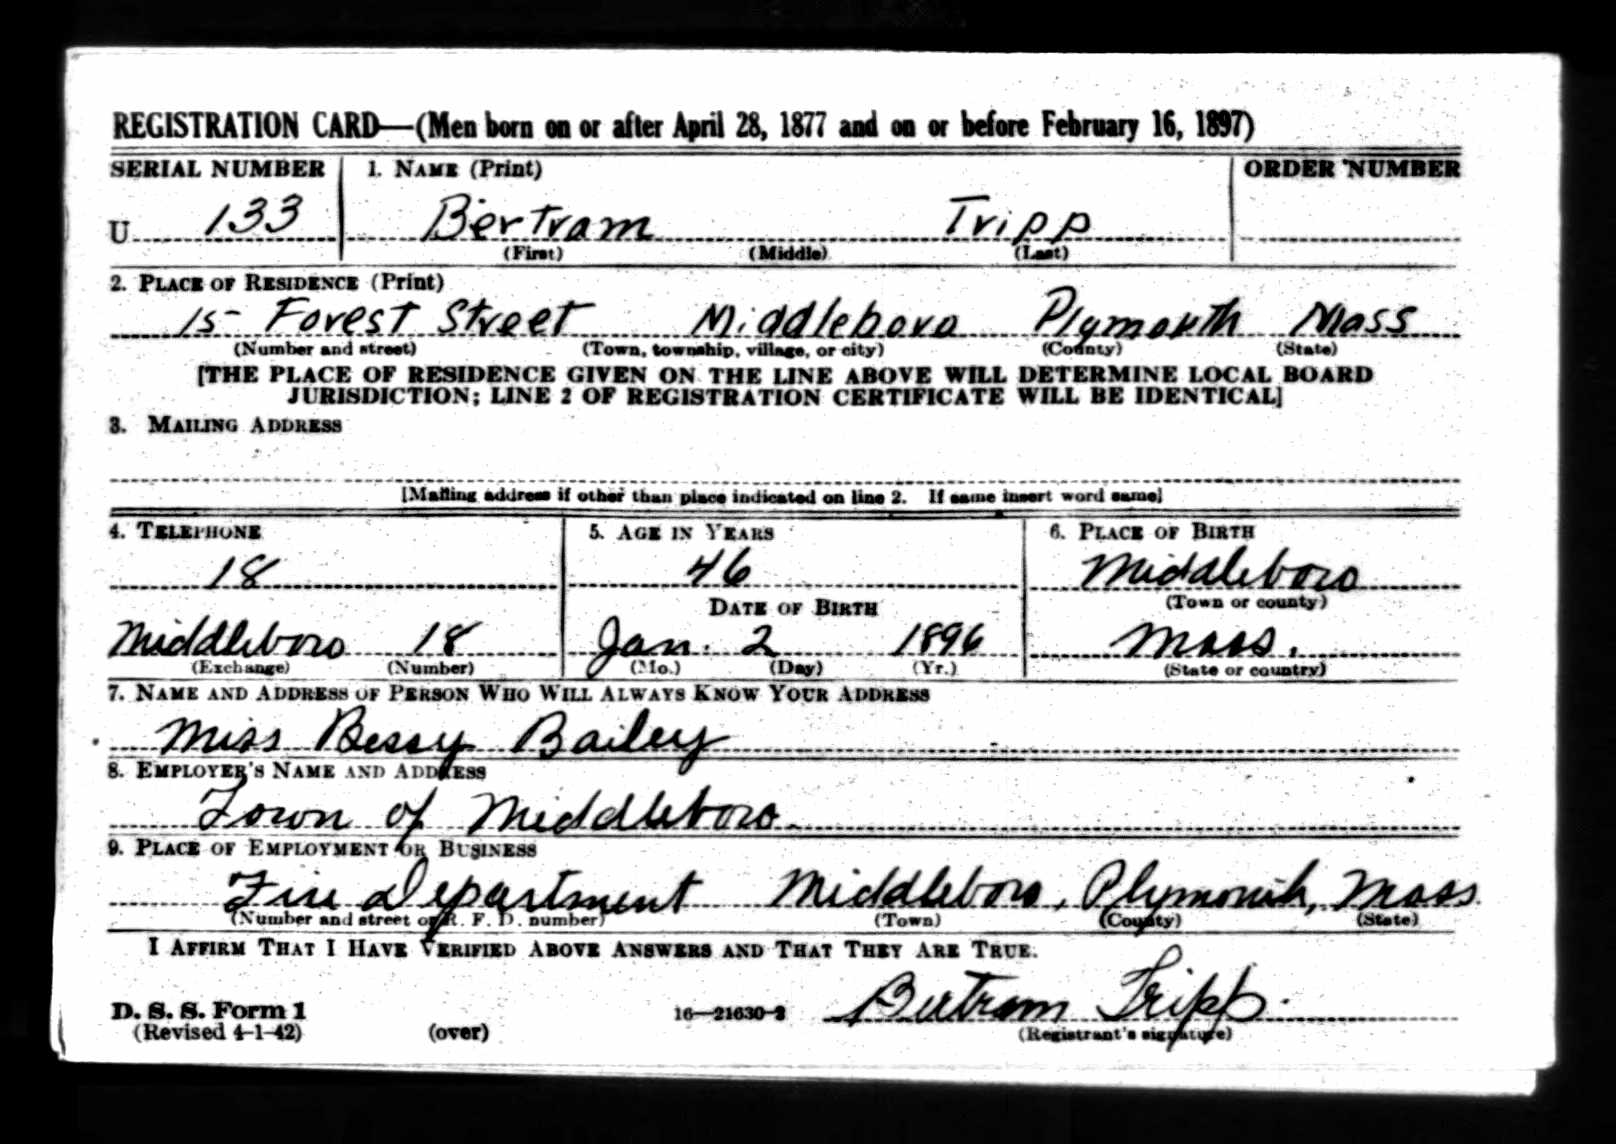 REGISTRATION CARD—(Men born on or after April 28, 1877 and on or before February 16, 1897)
SERIAL NUMBER 1. NAME (Print) ORDER NUMBER
U 133 Bertram Tripp
(First) (Middle) (Last)
2. PLACE OF RESIDENCE (Print)
15 Forest Street Middleboro Plymouth Mass
(Number and street) (Town, township, village, or city) (County) (State)
[THE PLACE OF RESIDENCE GIVEN ON THE LINE ABOVE WILL DETERMINE LOCAL BOARD
JURISDICTION; LINE 2 OF REGISTRATION CERTIFICATE WILL BE IDENTICAL]
3. MAILING ADDRESS
[Mailing address if other than place indicated on line 2. If same insert word same]
4. TELEPHONE 5. AGE IN YEARS 6. PLACE OF BIRTH
18 46 Middleboro
DATE OF BIRTH (Town or county)
Middleboro 18 Jan. 2 1896 Mass.
(Exchange) (Number) (Mo.) (Day) (Yr.) (State or country)
7. NAME AND ADDRESS OF PERSON WHO WILL ALWAYS KNOW YOUR ADDRESS
Miss Bessy Bailey
8. EMPLOYER'S NAME AND ADDRESS
Town of Middleboro
9. PLACE OF EMPLOYMENT OR BUSINESS
Fire Department Middleboro, Plymouth, Mass.
(Number and street or R. F. D. number) (Town) (County) (State)
I AFFIRM THAT I HAVE VERIFIED ABOVE ANSWERS AND THAT THEY ARE TRUE.
D. S. S. Form 1 16—21630-2 Bertram Tripp.
(Revised 4-1-42) (over) (Registrant's signature)